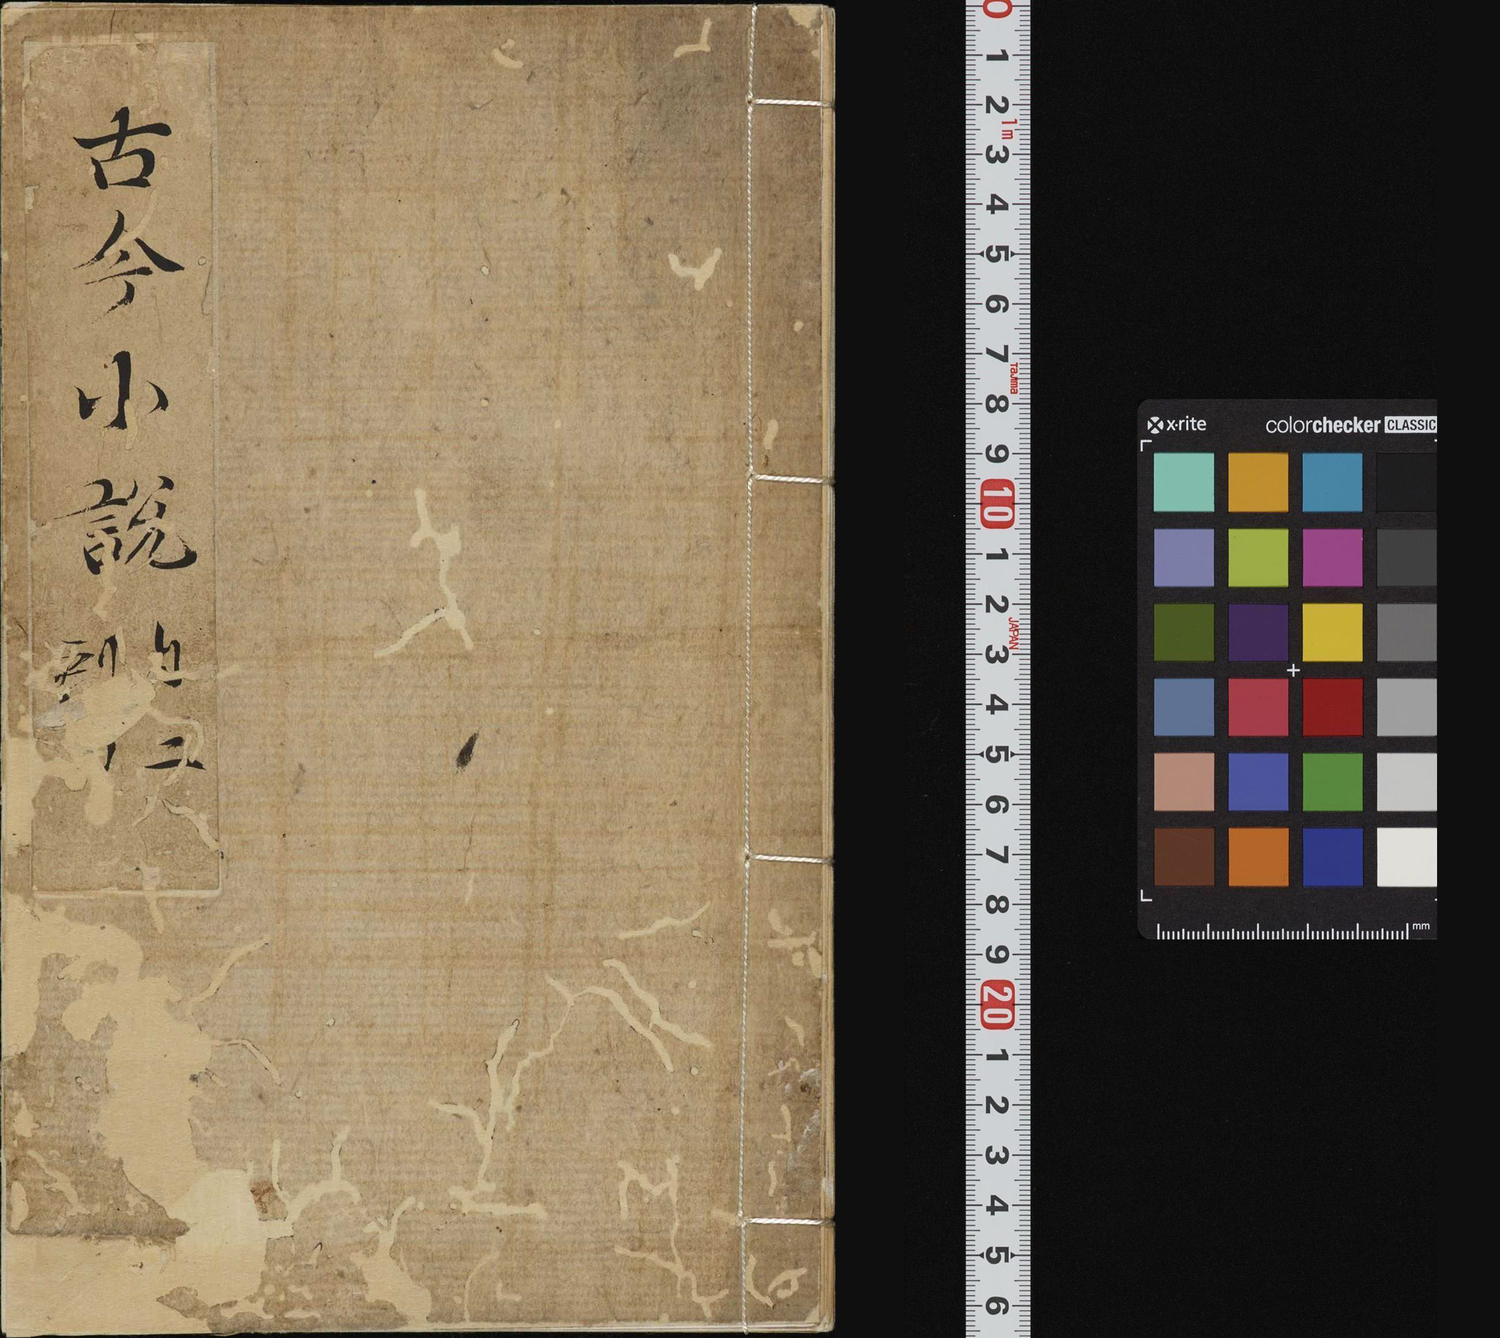 古今小説
0
1
2
1m
3
4
5
6
7
Tajima
8
9
10
1
2
JAPAN
3
4
5
6
7
8
9
20
1
2
3
4
5
6
x·rite
colorchecker CLASSIC
mm